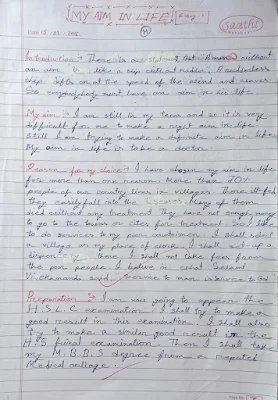 MY AIM IN LIFE
Saathi
Introduction :- There is a statement that A man without
an aim is like a sip without rudder. A rudderless
Ship drifts at the speed of the wind and
So everybody must have an aim in his life.
My aim :- I am still in my teens and so it is very
difficult for me to make a right aim in life.
still I am trying to make a definite aim in life.
My aim in life is to be a doctor.
Reason for my choice :- I have chosen my aim in life
for more than one reasons. More than 70%
people of our country lives in villages. There
they easily fall into the Many of them
died without any treatment They have not enough money
to go to the towns or cites for treatment. So I like
to do services to my poor contrimen. I shall
a village as my place of work. I shall set up a
there. I shall not take fees from
the poor people I belive in what Swami
Vivekananda said service to man is service to God
Preparation :- I am now going to appear the
H.S.L.C examination. I shall try to make a
good result in this examination. I shall also
try to make a similar good result in the
H.S final examination. Then I shall take
my M.B.B.S degree from a reputed
Medical collage.